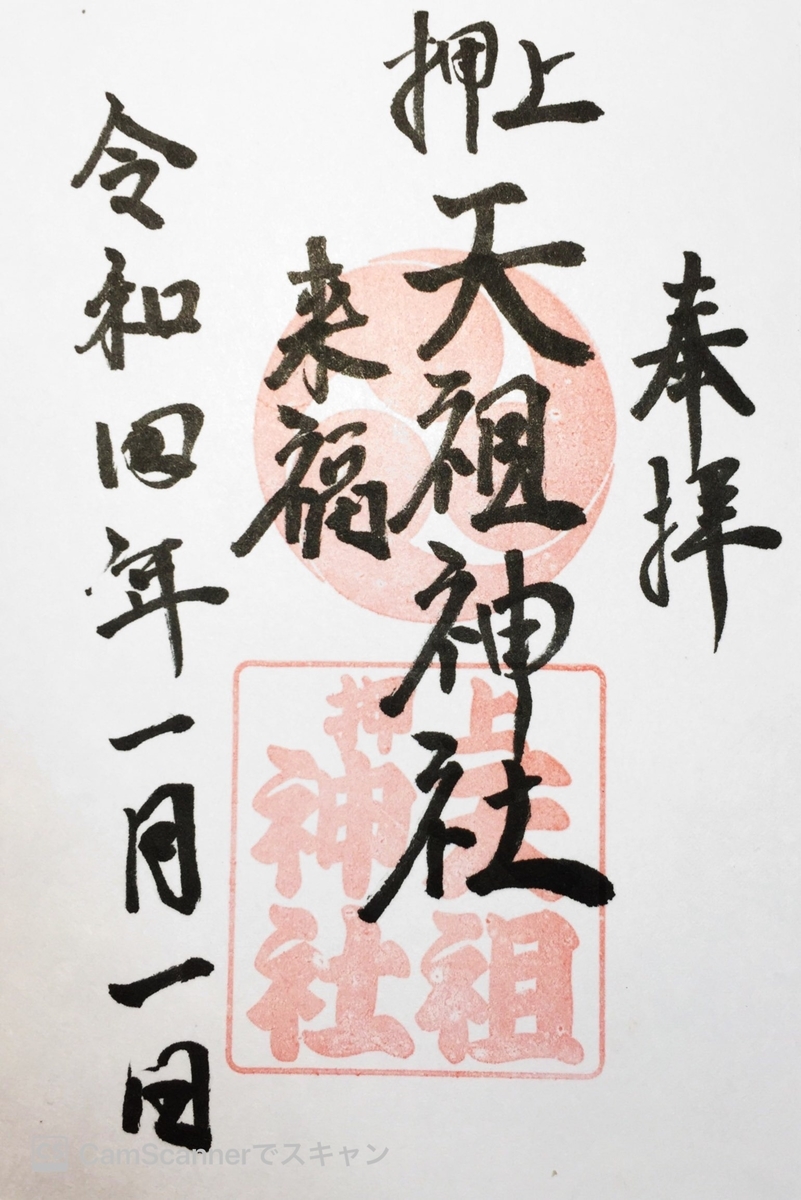 奉拝
押上
天祖神社
来福
令和四年一月一日
押上
天祖
神社
CamScannerでスキャン